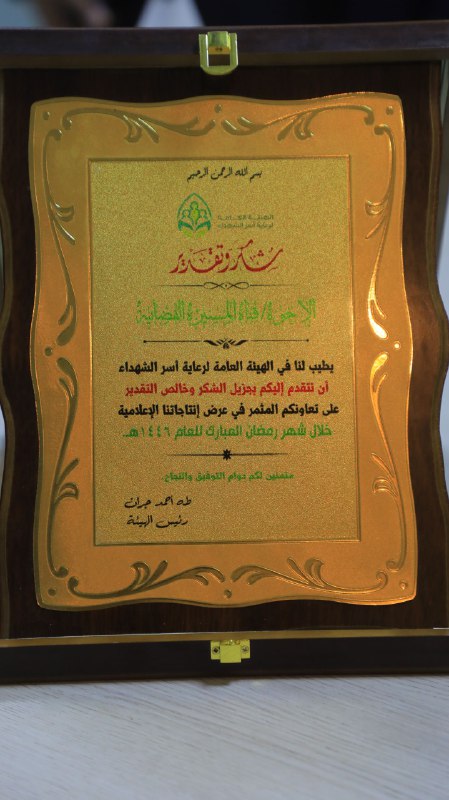 بسم الله الرحمن الرحيم
الهيئة العامة
لرعاية أسر الشهداء
شكر وتقدير
الإخوة/ قناة المسيرة الفضائية
يطيب لنا في الهيئة العامة لرعاية أسر الشهداء
أن نتقدم إليكم بجزيل الشكر وخالص التقدير
على تعاونكم المثمر في عرض إنتاجاتنا الإعلامية
خلال شهر رمضان المبارك للعام ١٤٤٦هـ.
متمنين لكم دوام التوفيق والنجاح.
طه احمد جران
رئيس الهيئة